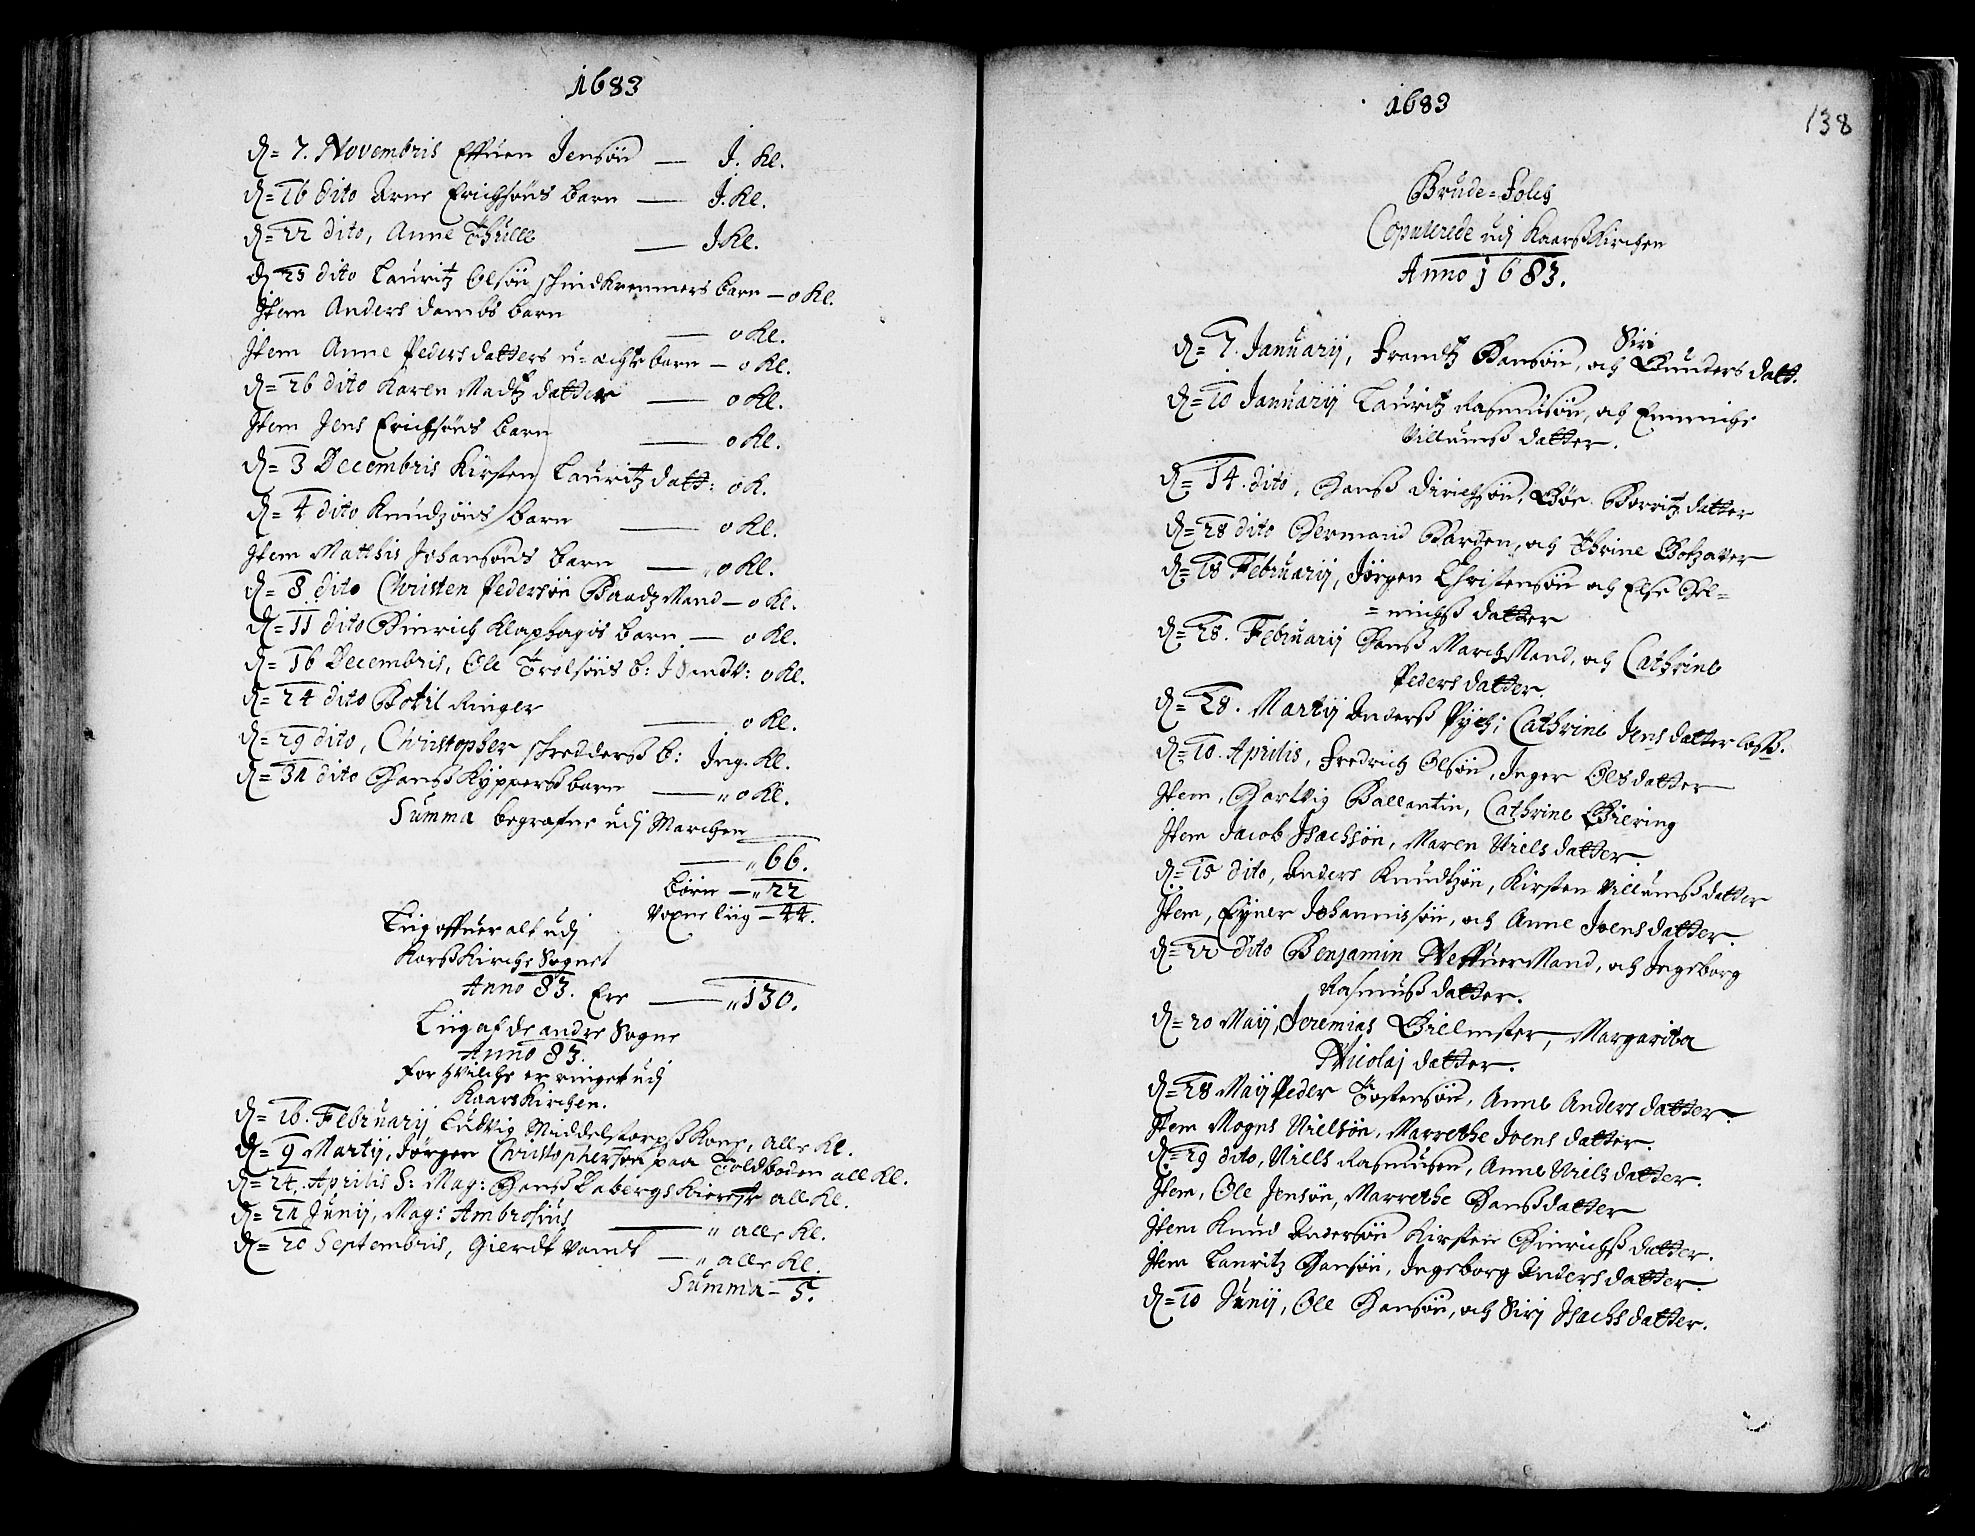 1683
D= 7. Novembris Effuen Jensøn — J. Kl.
D= 16 dito Arne Erichsøns barn — J. Kl.
D= 22 dito, Anne Thulle — J Kl.
D 25 dito Lauritz Olsøn skindkremmers barn — o Kl.
Item Anders dambs barn — o Kl.
Item Anne Pedersdatters u-ächte barn — o Kl.
D= 26 dito Karen Madtz datter — o Kl.
Item Jens Erichsøns barn — o Kl.
D= 3 Decembris Kirsten Lauritz datt: o K.
D= 4 dito Knudzøns barn — o Kl.
Item Matthis Johansøns barn — „ o Kl.
D= 8 dito Christen Pedersøn Baadz Mand — o Kl.
D= 11 dito Hinrich Klaphagis barn — o Kl.
D= 16 Decembris, Ole Trolsøns b: o Kl.
D= 24 dito Botil Ringer — o Kl.
D= 29 dito, Christopher skredderß b: Ing. Kl.
D= 31 dito Hanß Kyppers barn — „ o Kl.
Summa begrafne udj Marchen
— „ 66.
børn — „ 22
Voxne liig — 44.
Liig offuer alt udj
Korß Kirche Sognet
Anno 83. Ere — „ 130.
Liig af de andre Sogne
Anno 83.
for hvilche er ringet udj
Kaars Kirchen.
D= 16. Februarij Ludvig Middelstorpß Kone, alle Kl.
D= 9 Martij, Jørgen Christophersøn paa Toldboden all Kl.
D= 24. Aprilis S: Mag: Hanß Labergs Kiereste all Kl.
D= 21 Junij, Mag: Ambrosius — „ alle Kl.
D= 20 Septembris, Gierdt Vamdt — „ alle Kl.
Summa — 5.
1683
138
Brude-Folch
Copulerede udj Kaarß Kirchen
Anno 1683.
Siri
D= 7. Januarij, Frandtz Hansøn, och Gunders datt.
D= 10 Januarij Lauritz Rasmusøn, och Emmiche
Villumß datter.
D= 14. dito, Hanß Dirichsøn, Bør. Borritz datter
D= 28 dito Hermand Harzen, och Thrine
D= 18 Februarij, Jørgen Christensøn och Else Hel=
= michß datter
D= 28. Februarij Hanß March Mand, och Cathrine
Peders datter.
D= 28. Martij Anderß Pÿch, Cathrine Jens datter
D= 10. Aprilis, Fredrich Olsøn, Inger Olsdatter
Item, Hartvig Ballantin, Cathrine Giering
Item Jacob Isachsøn, Maren Niels datter
D= 15 dito, Anders Knudtzøn, Kirsten Villumß datter
Item, Eyner Johannissøn, och Anne Joens datter.
D= 22 dito Benjamin Veffuer Mand, och Ingeborg
Rasmuß datter.
D= 20 Maij, Jeremias Gillmster, Margarita
Nicolaj datter.
D= 28 Maij Peder Tostensøn, Anne Anders datter.
Item Mogns Nielsøn, Marrethe Joens datter.
D= 29 dito, Niels Rasmusen, Anne Niels datter.
Item, Ole Jensøn, Marrethe Hanßdatter
Item Knud Andersøn Kirsten Hinrichß datter.
Item Lauritz Hansøn, Ingeborg Anders datter.
D= 10 Junij, Ole Hansøn, och Sirj Isachs datter.